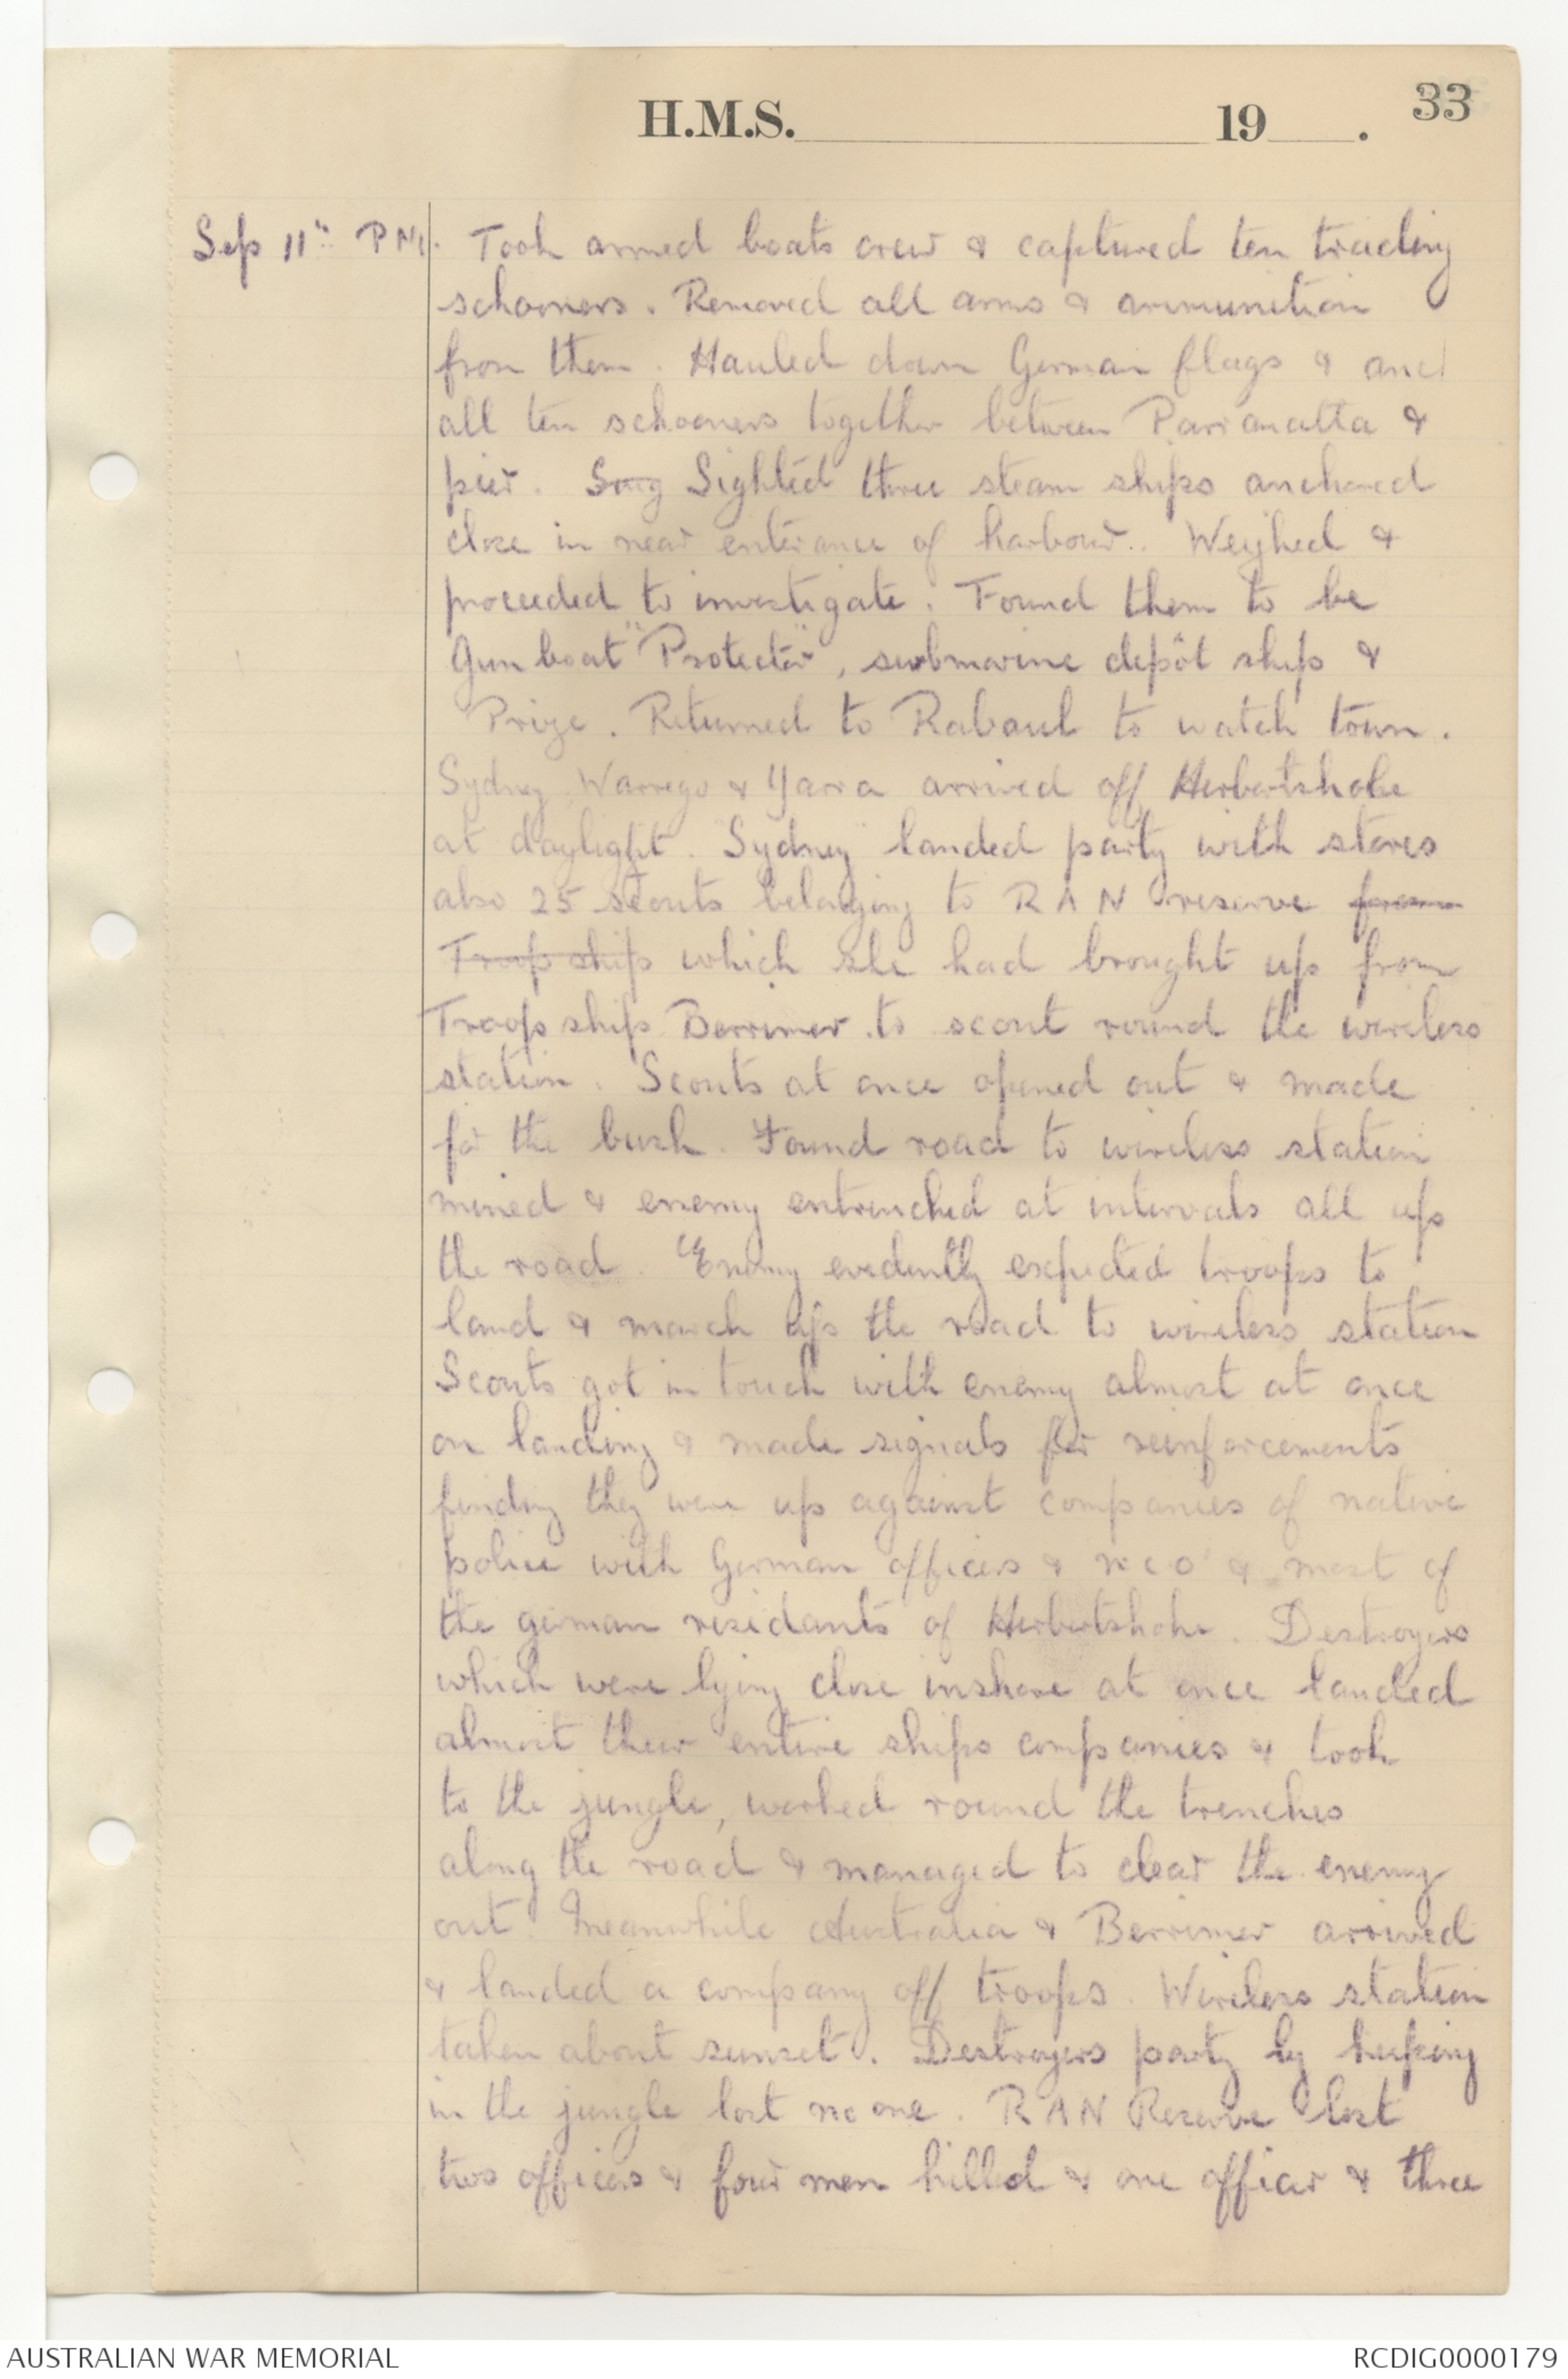 H.M.S. 19 . 33
Sep 11th PM. Took armed boats crew & captured ten trading
schooners. Removed all arms & ammunition
from them. Hauled down German flags & anc
all ten schooners together between Parramatta &
pier. Sighted three steam ships anchored
close in near enterance of harbour. Weighed &
proceeded to investigate. Found them to be
Gun boat "Protector", submarine depôt ship &
Prize. Returned to Rabaul to watch town.
Sydney, Warrego & Yarra arrived off Herbertshohe
at daylight. Sydney landed party with stores
also 25 scouts belonging to R A N reserve from
Troop ship which she had brought up from
Troop ship Berrimer to scout round the wireless
station. Scouts at once opened out & made
for the bush. Found road to wireless station
mined & enemy entrenched at intervals all up
the road. Enemy evidently expected troops to
land & march up the road to wireless station
Scouts got in touch with enemy almost at once
on landing & made signals for reinforcements
finding they were up against companies of native
police with German officers & N C O & most of
the german residants of Herbertshohe. Destroyers
which were lying close inshore at once landed
almost their entire ships companies & took
to the jungle, worked round the trenches
along the road & managed to clear the enemy
out. Meanwhile Australia & Berrimer arrived
& landed a company off troops. Wireless station
taken about sunset. Destroyers party by keeping
in the jungle lost no one. R A N Reserve lost
two officers & four men killed & one officer & three
AUSTRALIAN WAR MEMORIAL RCDIG0000179